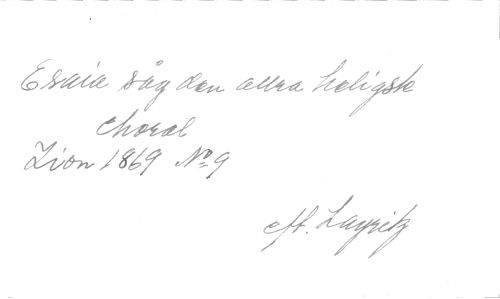 Esaia såg den allra heligste
choral
Zion 1869 No 9
eft. Layritz